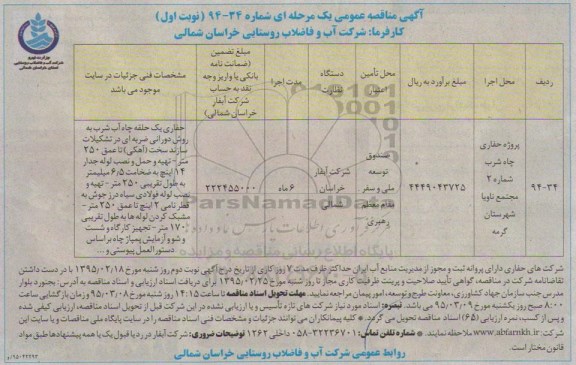 آگهی مناقصه عمومی یک مرحله ای شماره ۳۴-۹۴ (نوبت اول)
کارفرما: شرکت آب و فاضلاب روستایی خراسان شمالی
ردیف
محل اجرا
مبلغ برآورد به ریال
محل تأمین اعتبار
دستگاه نظارت
مدت اجرا
مبلغ تضمین
(ضمانت نامه
بانکی یا واریز وجه
نقد به حساب
شرکت آبفار
خراسان شمالی)
مشخصات فنی جزئیات در سایت
موجود می باشد
۹۴-۳۴
پروژه حفاری
چاه شرب
شماره ۲
مجتمع ناویا
شهرستان
گرمه
۴۴۴۹۰۴۳۷۲۵
صندوق
توسعه
ملی و سفر
مقام معظم
رهبری
شرکت آبفار
خراسان
شمالی
۶ ماه
۲۲۲۴۵۵۰۰۰
حفاری یک حلقه چاه آب شرب به
روش دورانی ضربه ای در تشکیلات
سازند سخت (آهکی) تا عمق ۲۵۰
متر- تهیه و حمل و نصب لوله جدار
۱۴ اینچ به ضخامت ۶/۵ میلیمتر
به طول تقریبی ۲۵۰ متر - تهیه و
نصب لوله فولادی سیاه درز جوش به
قطر نامی ۲ اینچ تا عمق ۲۵۰ متر -
مشبک کردن لوله ها به طول تقریبی
۱۷۰ متر - تجهیز کارگاه و شست
و شو و آزمایش پمپاژ چاه بر اساس
دستور العمل پیوستی و ...
شرکت های حفاری دارای پروانه ثبت و مجوز از مدیریت منابع آب ایران حداکثر ظرف مدت ۷ روز کاری از تاریخ درج آگهی نوبت دوم روز شنبه مورخ ۱۳۹۵/۰۲/۱۸ با در دست داشتن
تقاضانامه شرکت در مناقصه، گواهی تأیید صلاحیت و پرینت ظرفیت کاری مجاز تا روز شنبه مورخ ۱۳۹۵/۰۲/۲۵ برای دریافت اسناد ارزیابی و اسناد مناقصه به آدرس: بجنورد بلوار
مدرس جنب سازمان جهاد کشاورزی، معاونت طرح و توسعه، امور پیمان مراجعه نمایند. مهلت تحویل اسناد مناقصه تا ساعت ۱۴:۱۵ روز شنبه مورخ ۹۵/۰۳/۰۸ و زمان بازگشایی ساعت
۸:۰۰ صبح روز یکشنبه مورخ ۹۵/۰۳/۰۹ می باشد.
و پس از کسب، نمره ارزیابی (۶۵) اسناد مناقصه تحویل می گردد. * کلیه پیمانکاران می توانند جزئیات و مشخصات فنی اسناد مناقصه را در سایت پایگاه ملی مناقصات و یا سایت این
شرکت: www.abfarnkh.ir ملاحظه نمایند. * شماره تلفن تماس: ۳۲۲۳۶۷۰۱-۰۵۸ داخلی ۱۲۶۲ توضیحات ضروری: شرکت آبفار در رد یا قبول یک یا همه پیشنهادها طبق مواد
قانون مختار است.
روابط عمومی شرکت آب و فاضلاب روستایی خراسان شمالی
ParsNamadData
پایگاه اطلاع رسانی مناقصه و مزایده